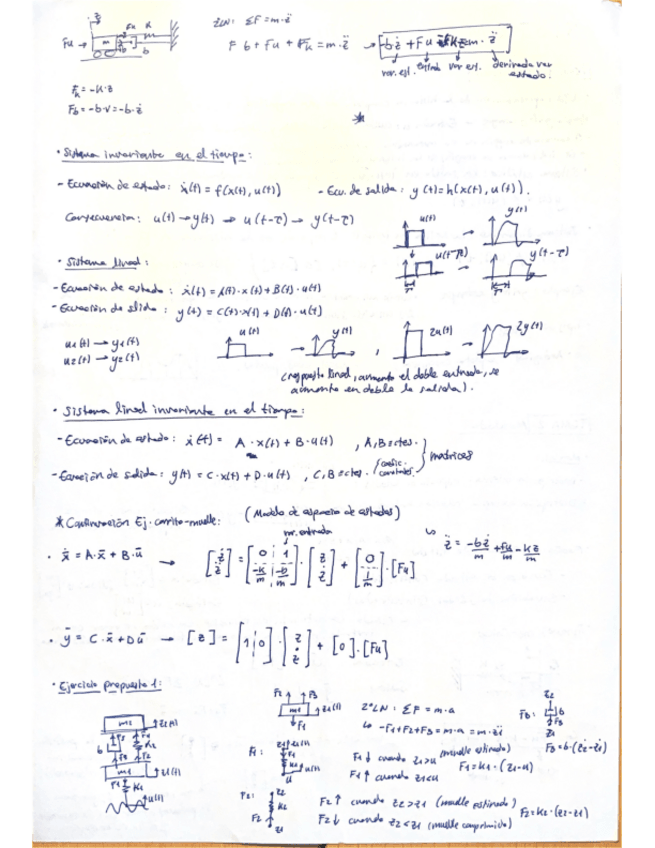 2LN: ΣF = m·z̈
F b + Fu + Fk = m·z̈ → -bż + Fu - kz = m·z̈
var. est. entrada var est. derivada var estado.
Fu → m K b
Fk = -k·z
Fb = -b·v = -b·ż
*
· Sistema invariante en el tiempo:
- Ecuación de estado: ẋ(t) = f(x(t), u(t)) - Ecu. de salida: y(t) = h(x(t), u(t)).
Consecuencia: u(t) → y(t) ⇒ u(t-τ) → y(t-τ)
u(t) → y(t)
u(t-τ) → y(t-τ)
· Sistema lineal:
- Ecuación de estado: ẋ(t) = A(t)·x(t) + B(t)·u(t)
- Ecuación de slida: y(t) = C(t)·x(t) + D(t)·u(t)
u1(t) → y1(t)
u2(t) → y2(t)
u(t) → y(t) , 2u(t) → 2y(t)
(respuesta lineal, aumento el doble entrada, se
aumenta en doble la salida).
· Sistema lineal invariante en el tiempo:
- Ecuación de estado: ẋ(t) = A·x(t) + B·u(t) , A, B = ctes.
- Ecuación de salida: y(t) = C·x(t) + D·u(t) , C, B = ctes. matrices
* Continuación Ej. carrito-muelle: (Modelo de espacio de estados)
· ẋ = A·x̄ + B·ū → [ż z̈] = [0 1 -k/m -b/m]·[z ż] + [0 1/m]·[Fu]
↪ z̈ = -bż/m + Fu/m - kz/m
· ȳ = C·x̄ + Dū → [z] = [1 0]·[z ż] + [0]·[Fu]
· Ejercicio propuesto 1:
m2 z2(t)
b F3 F2 K2
m1 z1(t)
F1 K1
u(t)
F2 F3
m1 z1(t)
F1
2ªLN: ΣF = m·a
↪ -F1+F2+F3 = m·a = m·z̈1
F1: z1(t) K1 u(t)
F1 ↓ cuando z1>u (muelle estirado)
F1 ↑ cuando z1<u
F1 = k1·(z1-u)
F2: z2 K2 F2 z1
F2 ↑ cuando z2>z1 (muelle estirado)
F2 ↓ cuando z2<z1 (muelle comprimido)
F2 = k2·(z2-z1)
F3: z2 b F3 z1
F3 = b·(ż2-ż1)